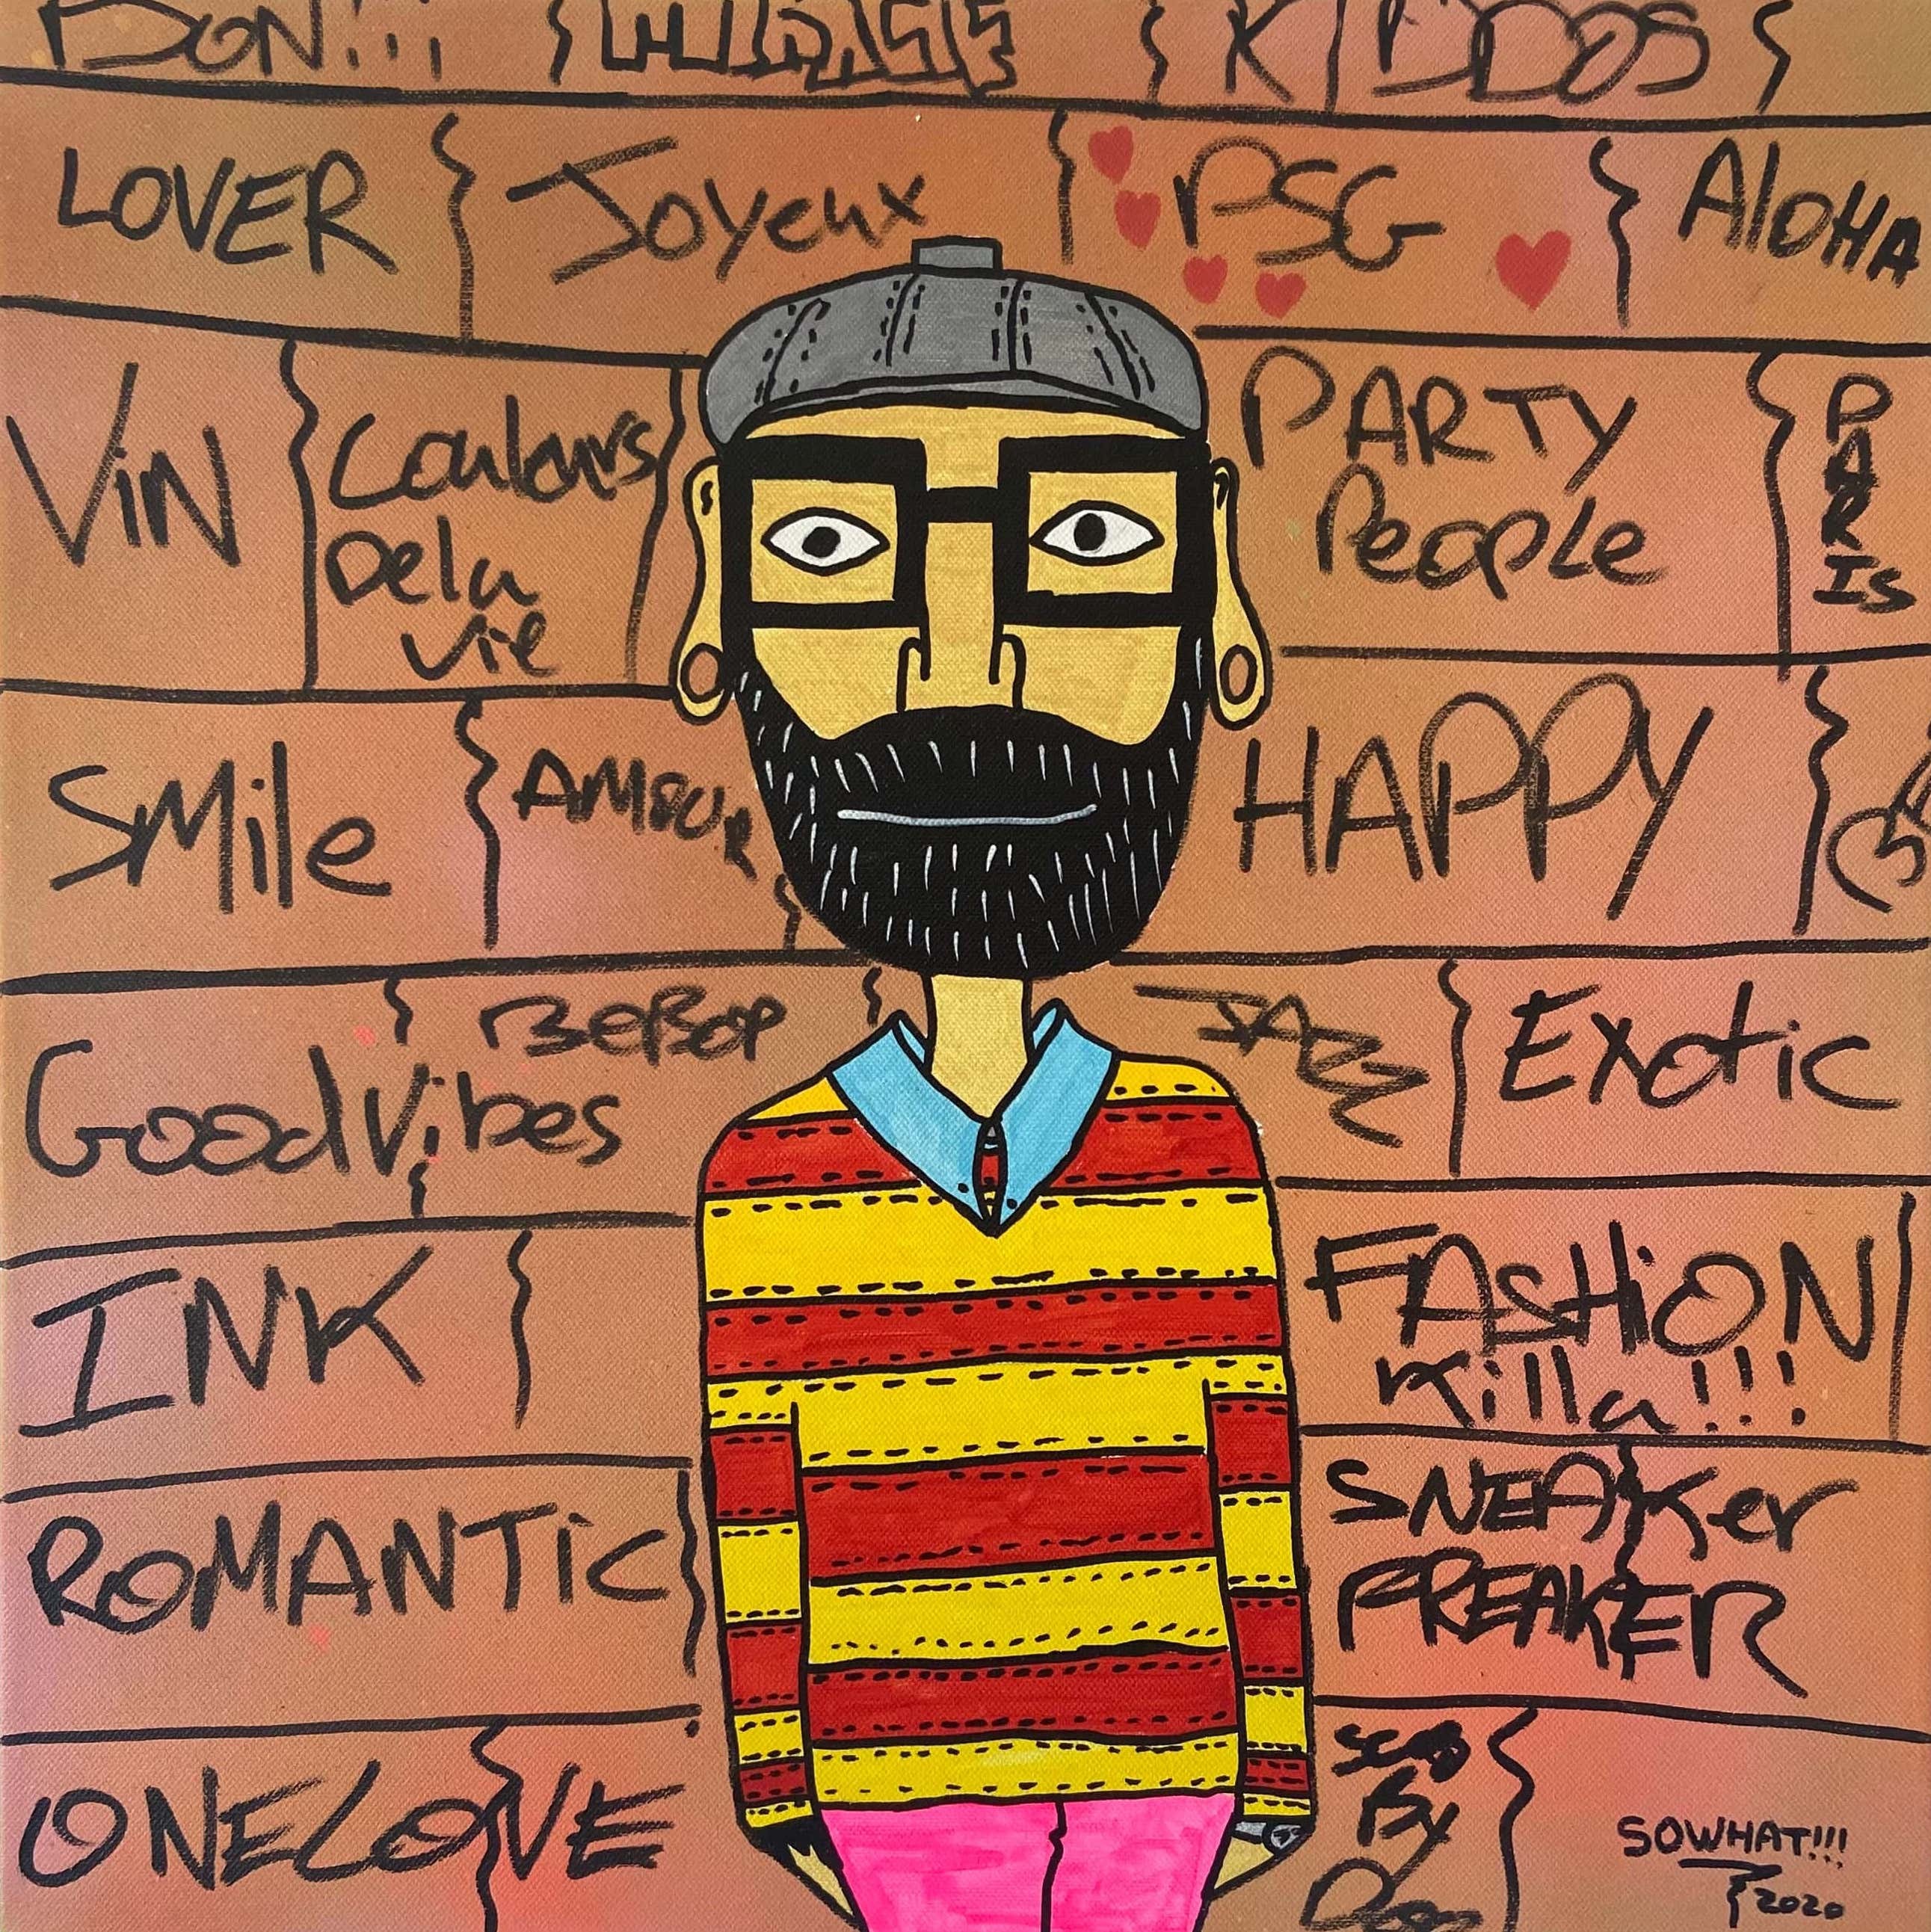 KIDDOS
LOVER
Joyeux
PSG
AloHA
ViN
Coulours
De la
vie
PARTY
PeopLe
PARIS
SMile
AMOUR
HAPPY
Good Vibes
BeBop
JAZZ
Exotic
INK
FASHiON
Killa!!!
ROMANTiC
SNEAKer
FREAKER
ONELOVE
By
SOWHAT!!!
2020